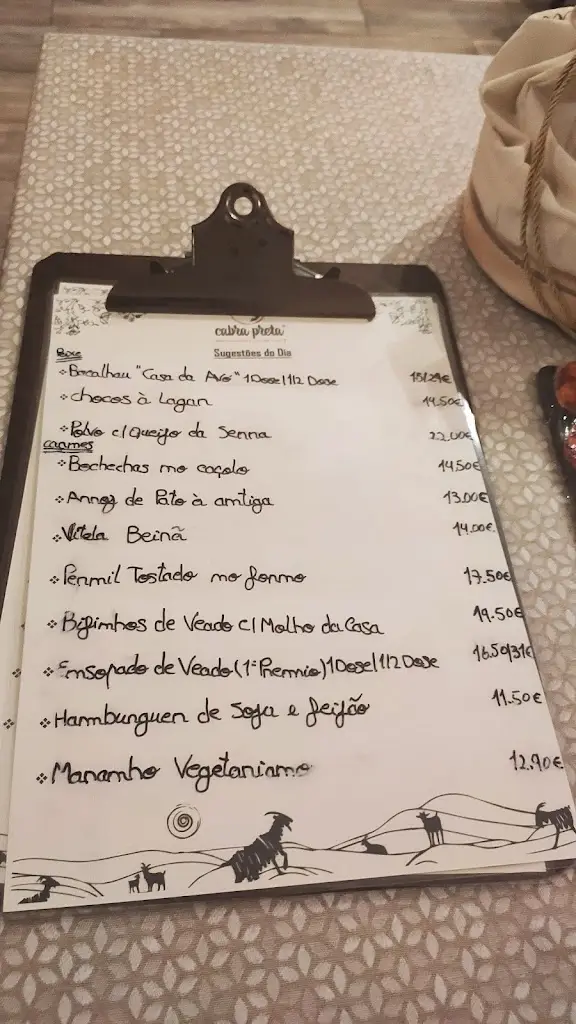 cabra preta
Sugestões do Dia
Peixe
Bacalhau "Casa da Avó" 1 Dose/1/2 Dose 15/29€
Chocos à Lagar 19.50€
Polvo c/ Queijo da Serra 22.00€
Carnes
Bochechas no caçolo 14.50€
Arroz de Pato à antiga 13.00€
Vitela Beirã 14.00€
Pernil Tostado no forno 17.50€
Bifinhos de Veado c/ Molho da Casa 19.50€
Ensopado de Veado (1º Premio) 1 Dose/1/2 Dose 16.50/31€
Hamburguer de Soja e feijão 11.50€
Maranho Vegetariano 12.90€